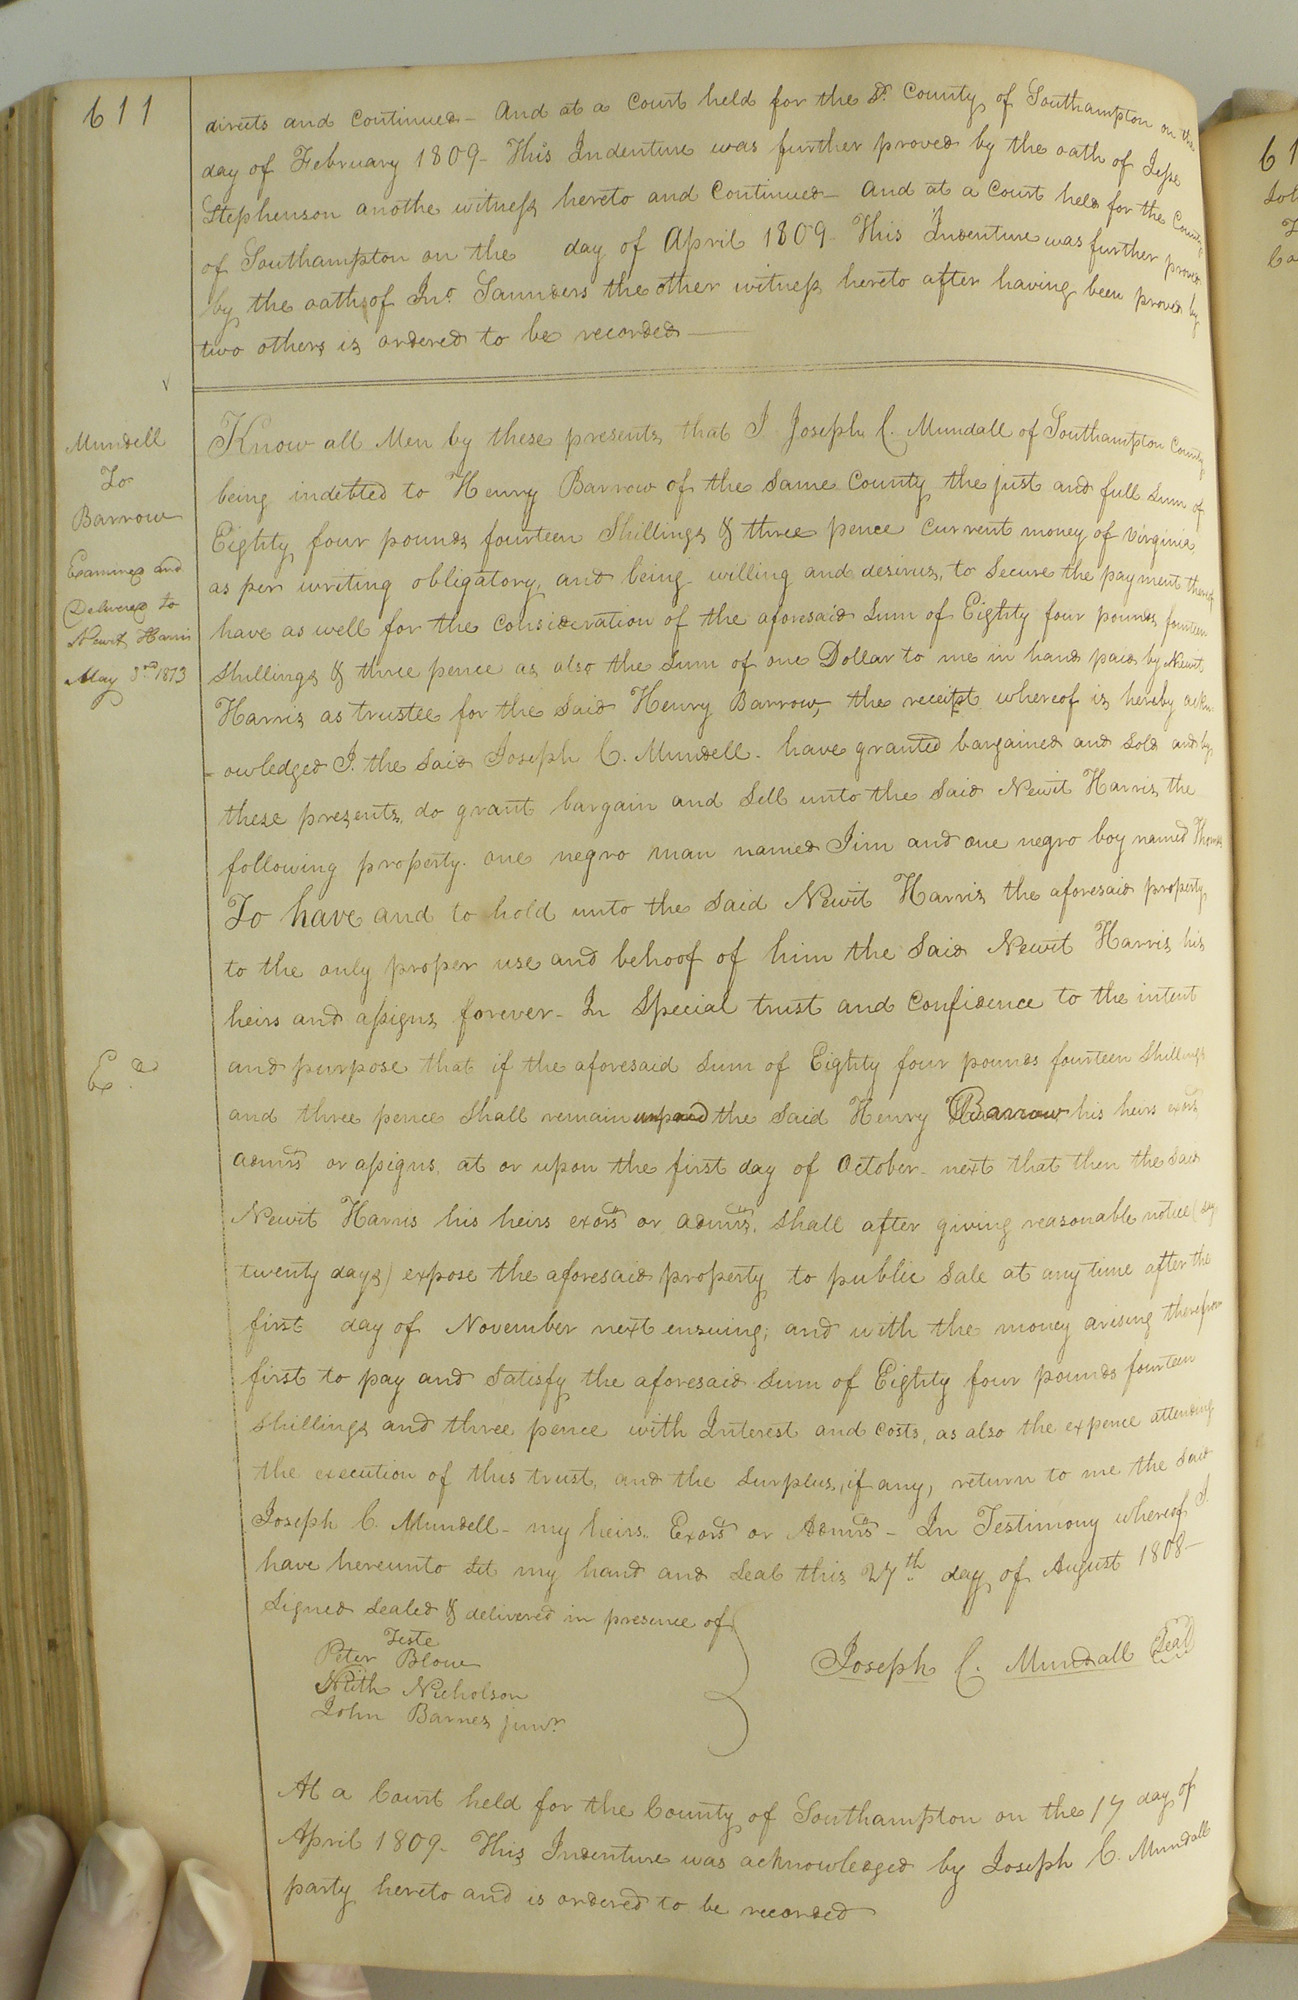 611
directs and Continued - And at a Court held for the sd. County of Southampton on the
day of February 1809 - This Indenture was further proved by the oath of Jesse
Stephenson anothe witness hereto and Continued - And at a Court held for the County
of Southampton on the day of April 1809 - This Indenture was further proved
by the oath of Jno. Saunders the other witness hereto after having been proved by
two others is ordered to be recorded -
Mundell
To
Barrow
Examined and
Delivered to
Newit Harris
May 3rd 1813
Know all Men by these presents that I Joseph C. Mundall of Southampton County
being indebted to Henry Barrow of the Same County the just and full Sum of
Eighty four pounds fourteen Shillings & three pence Current money of Virginia
as per writing obligatory, and being willing and desirus, to Secure the payment thereof
have as well for the Consideration of the aforesaid Sum of Eighty four pounds fourteen
Shillings & three pence as also the Sum of one Dollar to me in hand paid by Newit
Harris as trustee for the Said Henry Barrow, the receipt whereof is hereby ackn
-owledged I. the Said Joseph C. Mundell - have granted bargained and Sold and by
these presents, do grant bargain and Sell unto the Said Newit Harris the
following property. one negro man named Jim and one negro boy named Thomas
To have and to hold unto the Said Newit Harris the aforesaid property
to the only proper use and behoof of him the Said Newit Harris his
heirs and assigns forever - In Special trust and Confidence to the intent
and purpose that if the aforesaid Sum of Eighty four pounds fourteen Shillings
Ex.d
and three pence Shall remain unpaid the Said Henry Barrow his heirs exors
admrs or assigns, at or upon the first day of October - next that then the Said
Newit Harris his heirs exors or admrs. Shall after giving reasonable notice (say
twenty days) expose the aforesaid property to public Sale at any time after the
first day of November next ensuing; and with the money arising therefrom
first to pay and Satisfy the aforesaid Sum of Eighty four pounds fourteen
Shillings and three pence with Interest and Costs, as also the expence attending
the execution of this trust, and the Surplus, if any, return to me the Said
Joseph C. Mundell - my heirs. Exors or Admrs - In Testimony whereof I
have hereunto Set my hand and Seal this 27th day of August 1808 -
Signed Sealed & delivered in presence of
Teste
Peter Blow
Nuth Nicholson
John Barnes junr.
Joseph C. Mundall Seal
At a Court held for the County of Southampton on the 17 day of
April 1809 - This Indenture was acknowledged by Joseph C. Mundall
party hereto and is ordered to be recorded
61